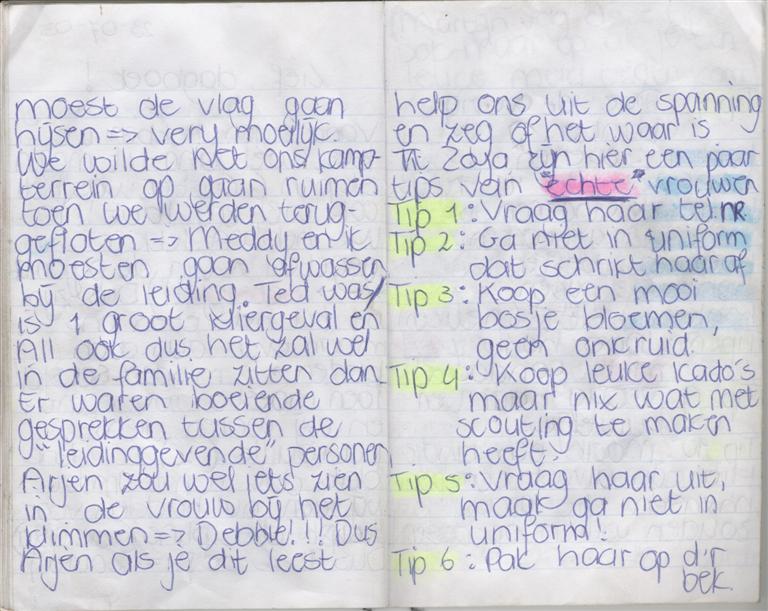 moest de vlag gaan
hijsen => very moeilijk.
We wilde net ons kamp-
terrein op gaan ruimen
toen we werden terug-
gefloten => Meddy en ik
moesten gaan afwassen
bij de leiding. Ted was/
is 1 groot kliergeval en
All ook dus het zal wel
in de familie zitten dan.
Er waren boeiende
gesprekken tussen de
"leidinggevende" personen
Arjen zou wel iets zien
in de vrouw bij het
klimmen => Debbie!!! Dus
Arjen als je dit leest
help ons uit de spanning
en zeg of het waar is
Tit Zaya zijn hier een paar
tips van "echte" vrouwen
Tip 1: Vraag haar tel.nr
Tip 2: Ga niet in uniform
dat schrikt haar af
Tip 3: Koop een mooi
bosje bloemen,
geen onkruid.
Tip 4: Koop leuke kado's
maar nix wat met
scouting te maken
heeft.
Tip 5: Vraag haar uit,
maar ga niet in
uniform!
Tip 6: Pak haar op d'r
bek.